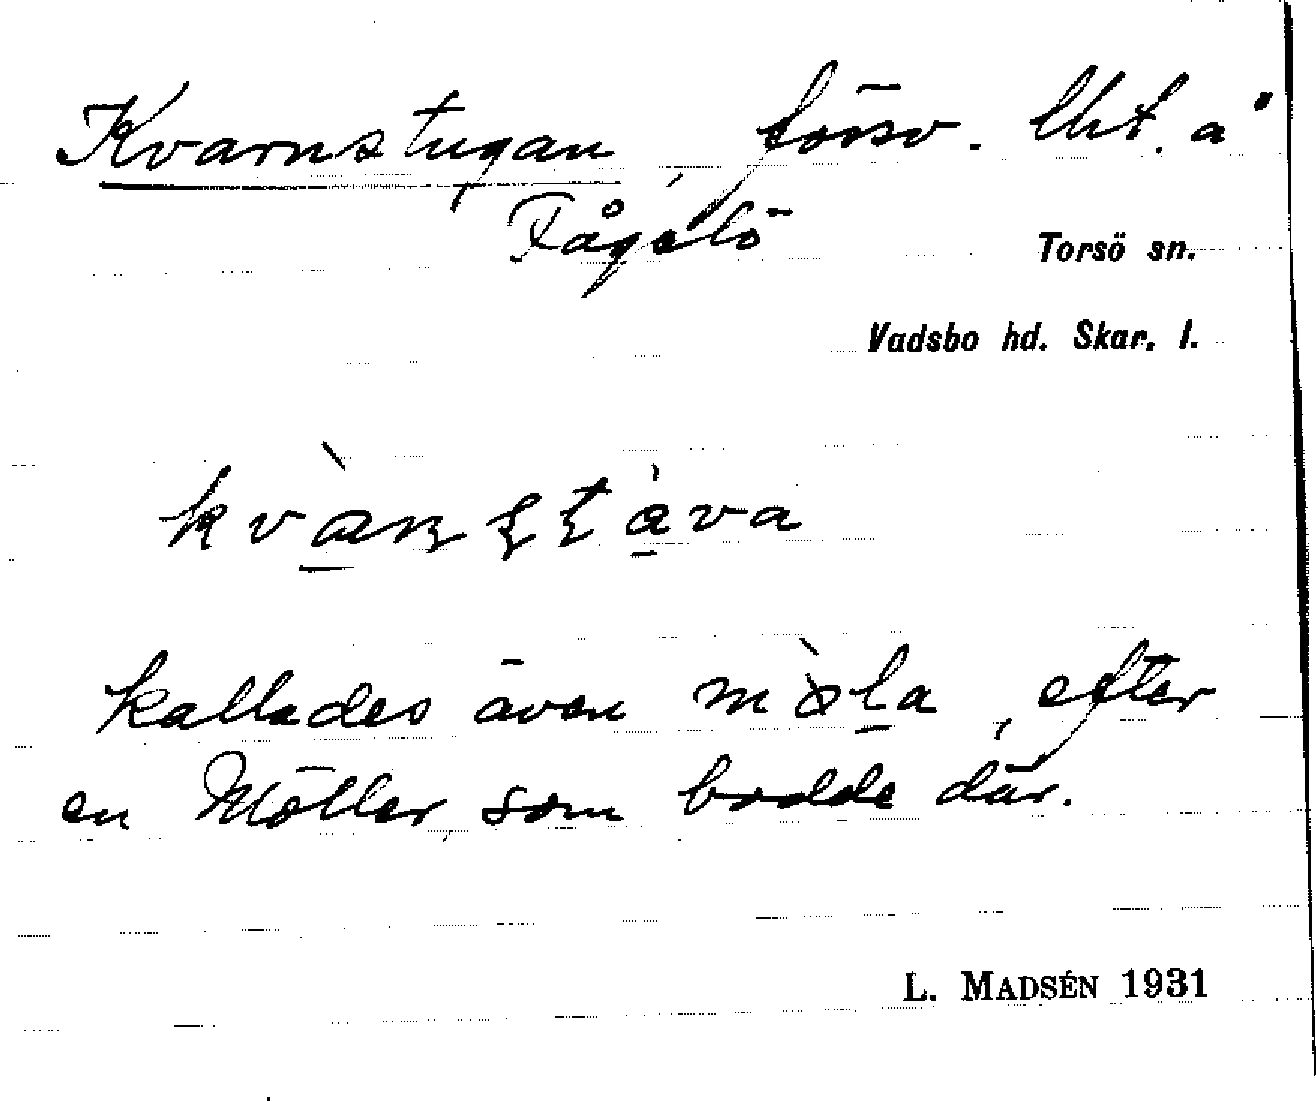 Kvarnstugan, försv. lht. å
Fågelö
Torsö sn.
Vadsbo hd. Skar. l.
kallades även mø̀la, efter
en Möller, som bodde där.
L. MADSÉN 1931